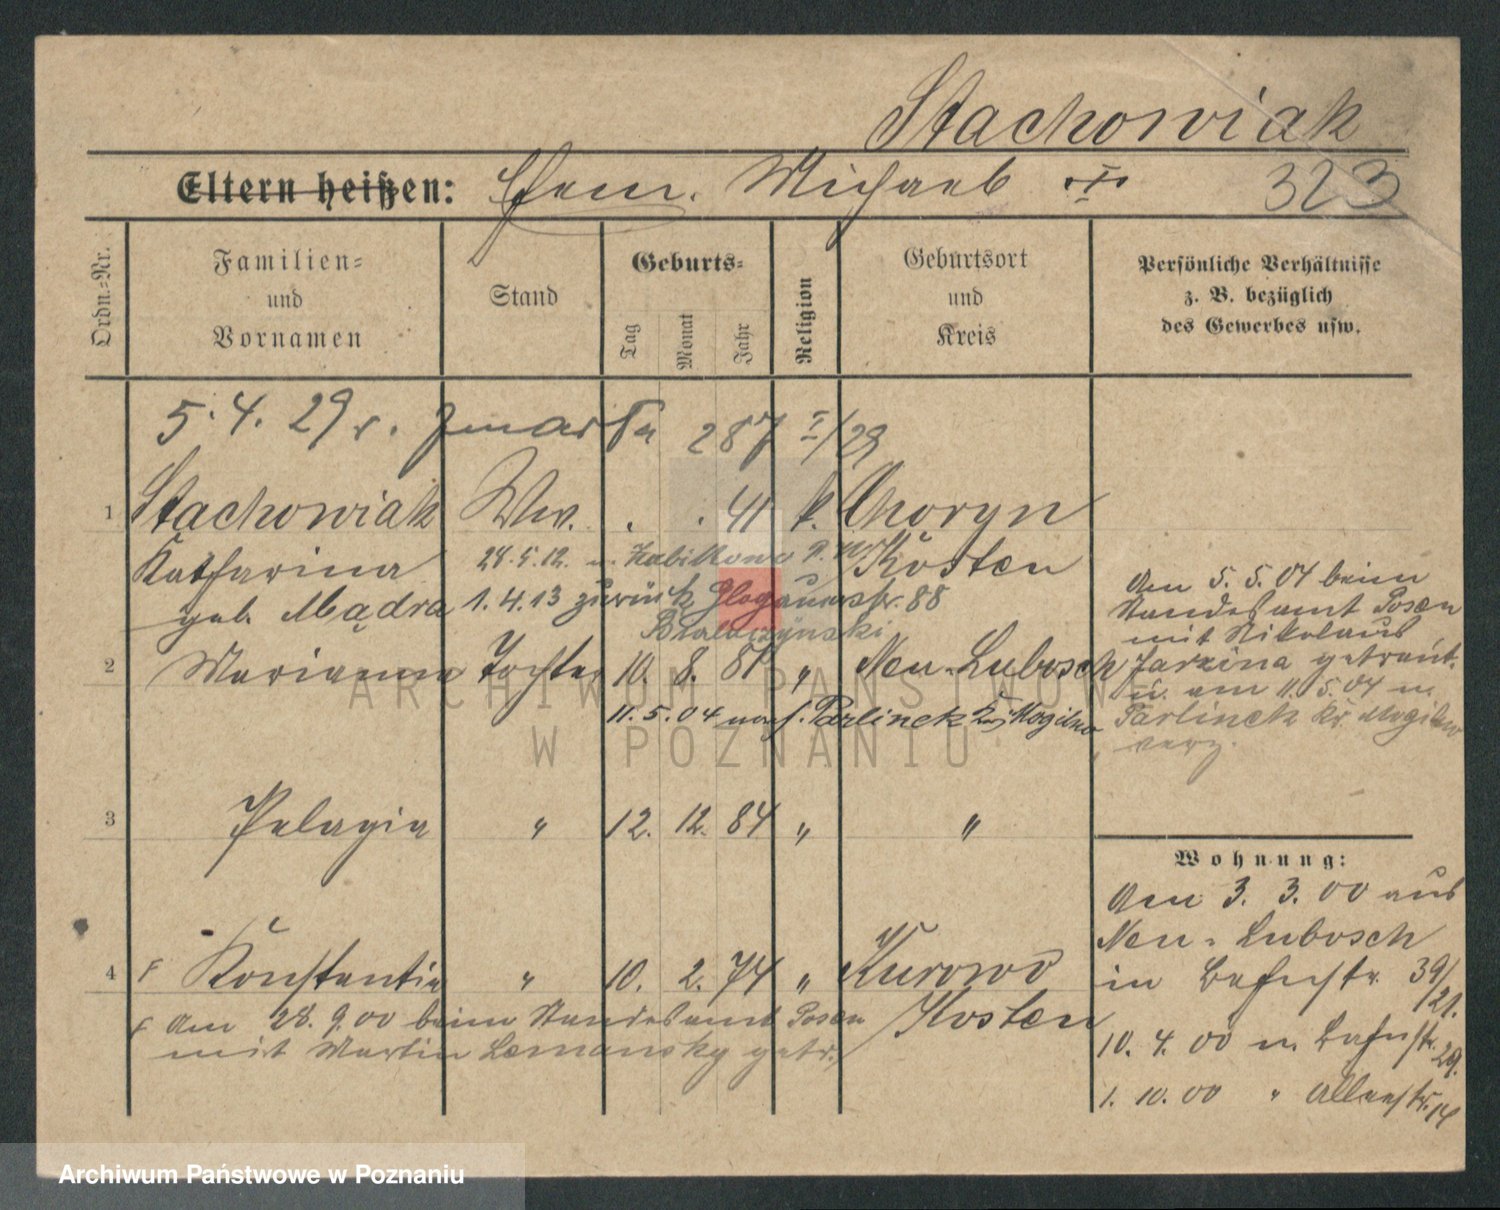 Stachowiak
Eltern heißen: Michael I 323
Ordn.-Nr. Familien- und Vornamen Stand Geburts- Tag Monat Jahr Religion Geburtsort und Kreis Persönliche Verhältnisse z. B. bezüglich des Gewerbes usw.
5. 4. 29 287 I/29
1 Stachowiak Ww. . . 41 k. Choryn
Katharina 28.5.12. n. Zabikowo Kosten
geb. Mądra 1.4.13 zurück Glogauerstr. 88
2 Marianna Tochter 10. 8. 81 " Neu-Lubosch
11. 5. 04 nach Parlinek Kr. Mogilno
Am 5. 5. 04 beim
Standesamt Posen
mit Nikolaus
Jarzina getraut
u. am 11. 5. 04 n.
Parlinek Kr. Mogilno
verz.
3 Pelagia " 12. 12. 84 " "
Wohnung:
Am 3. 3. 00 aus
Neu-Lubosch
in 39/
121.
10. 4. 00 n. 29.
1. 10. 00 " 14
4 Konstantia " 10. 2. 74 " Kurowo
Am 28. 9. 00 beim Standesamt Posen Kosten
mit Martin Lemansky getr.
ARCHIWUM PAŃSTWOWE
W POZNANIU
Archiwum Państwowe w Poznaniu